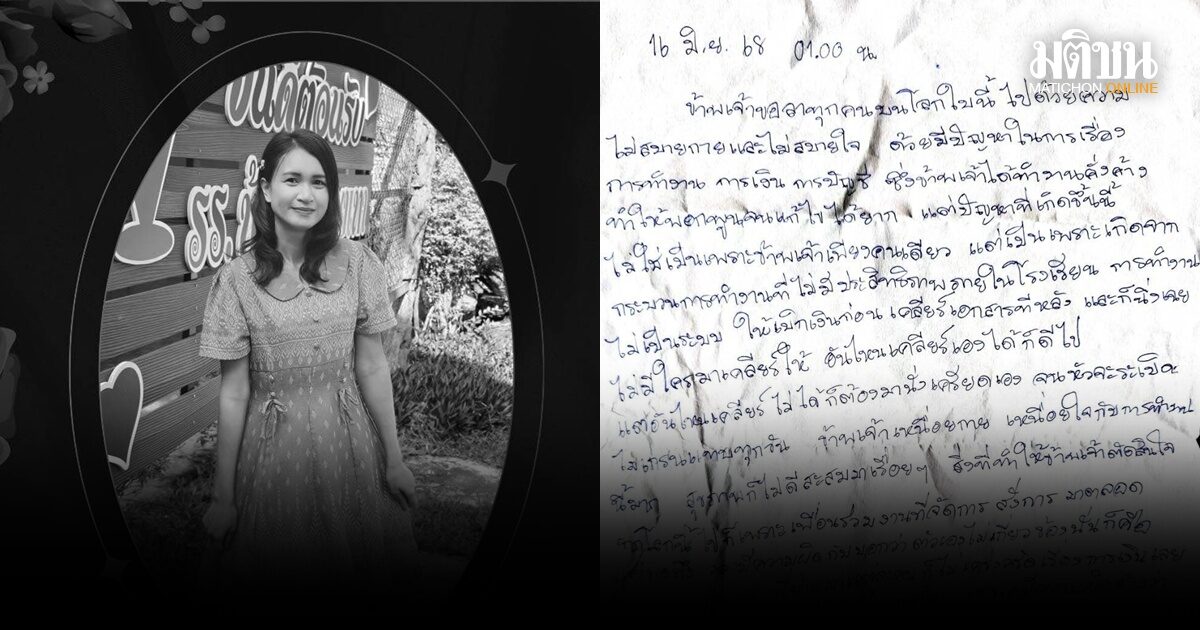 ยินดีต้อนรับ
รร.
มติชน
MATICHON ONLINE
16 มิ.ย. 68 01.00 น.
ข้าพเจ้าขอลาทุกคนบนโลกใบนี้ ไปด้วยความ
ไม่สบายกายและไม่สบายใจ ด้วยมีปัญหาในการเรื่อง
การทำงาน การเงิน การบัญชี ซึ่งข้าพเจ้าได้ทำงานคั่งค้าง
ทำให้พอกพูนจนแก้ไขได้ยาก แต่ปัญหาที่เกิดขึ้นนี้
ไม่ใช่เป็นเพราะข้าพเจ้าเพียงคนเดียว แต่เป็นเพราะเกิดจาก
กระบวนการทำงานที่ไม่มีประสิทธิภาพภายในโรงเรียน การทำงาน
ไม่เป็นระบบ ให้เบิกเงินก่อน เคลียร์เอกสารทีหลัง และก็นิ่งเฉย
ไม่มีใครมาเคลียร์ให้ อันไหนเคลียร์เองได้ก็ดีไป
แต่อันไหนเคลียร์ไม่ได้ก็ต้องมานั่งเครียดเอง จนหัวจะระเบิด
ไมเกรนแทบทุกวัน ข้าพเจ้าเหนื่อยกาย เหนื่อยใจกับการทำงาน
นี้มาก สุขภาพก็ไม่ดีสะสมมาเรื่อยๆ สิ่งที่ทำให้ข้าพเจ้าตัดสินใจ
ก็เพราะเพื่อนร่วมงานที่จัดการ สั่งการ มาตลอด
มีความผิดกลับบอกว่า ตัวเองไม่เกี่ยวข้องนั่นก็คือ